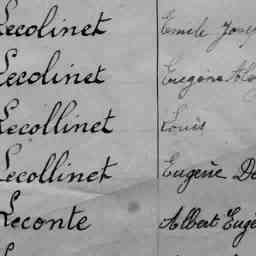 Lecolinet Emile Josep
Lecolinet Eugène
Lecollinet Louis
Lecollinet Eugène De
Leconte Albert Eugè